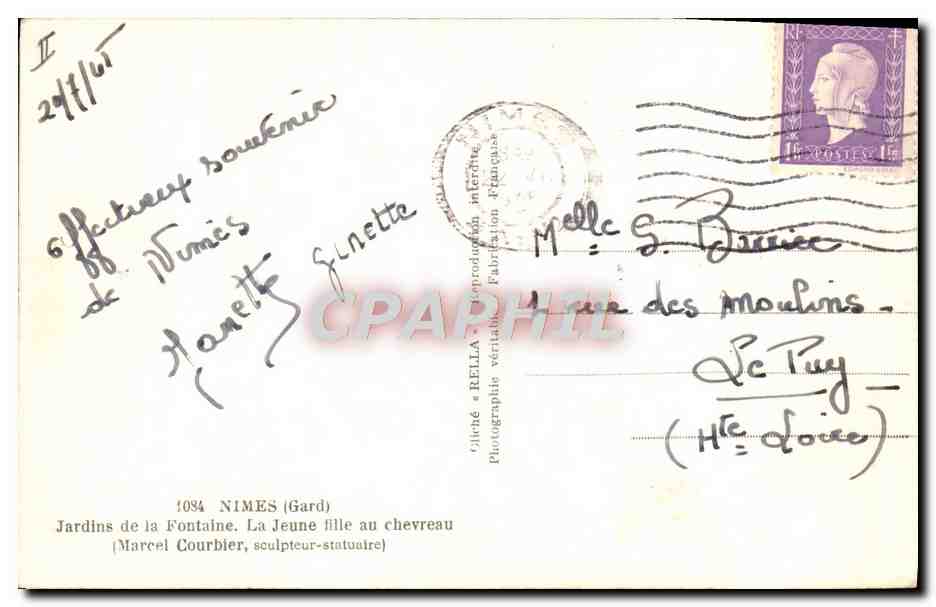 II
29/7/45
affectueux souvenir
de Nimes
Nanette Ginette
1084 NIMES (Gard)
Jardins de la Fontaine. La Jeune fille au chevreau
(Marcel Courbier, sculpteur-statuaire)
Cliché « RELLA » - Reproduction interdite
Photographie véritable - Fabrication Française
NIMES
RF
1 fr POSTES 1 fr
Melle S.
rue des Moulins -
Le Puy
(Hte Loire)
CPAPHIL